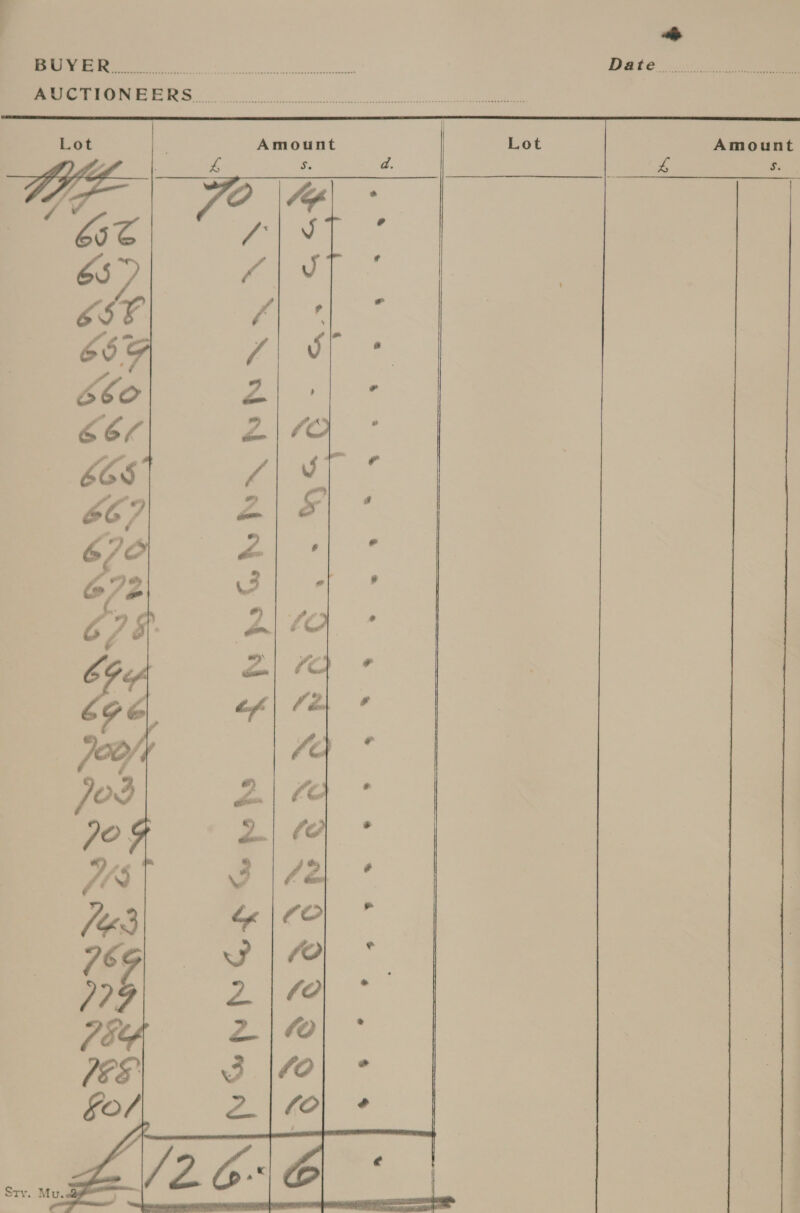 BUYER Date
AUCTIONEERS
Lot Amount Lot Amount
£ s. d. £ s.
70 14 -
656 1 5 -
657 1 5 -
658 1 - -
659 1 5 -
660 2 - -
661 2 10 -
665 1 5 -
667 2 8 -
670 2 - -
672 3 - -
678 2 10 -
694 2 10 -
696 4 12 -
700/1 10 -
703 2 10 -
709 2 10 -
715 3 12 -
743 4 10 -
769 3 10 -
779 2 10 -
784 2 10 -
788 3 10 -
801 2 10 -
£126 - 6 -
Sty. Mu.